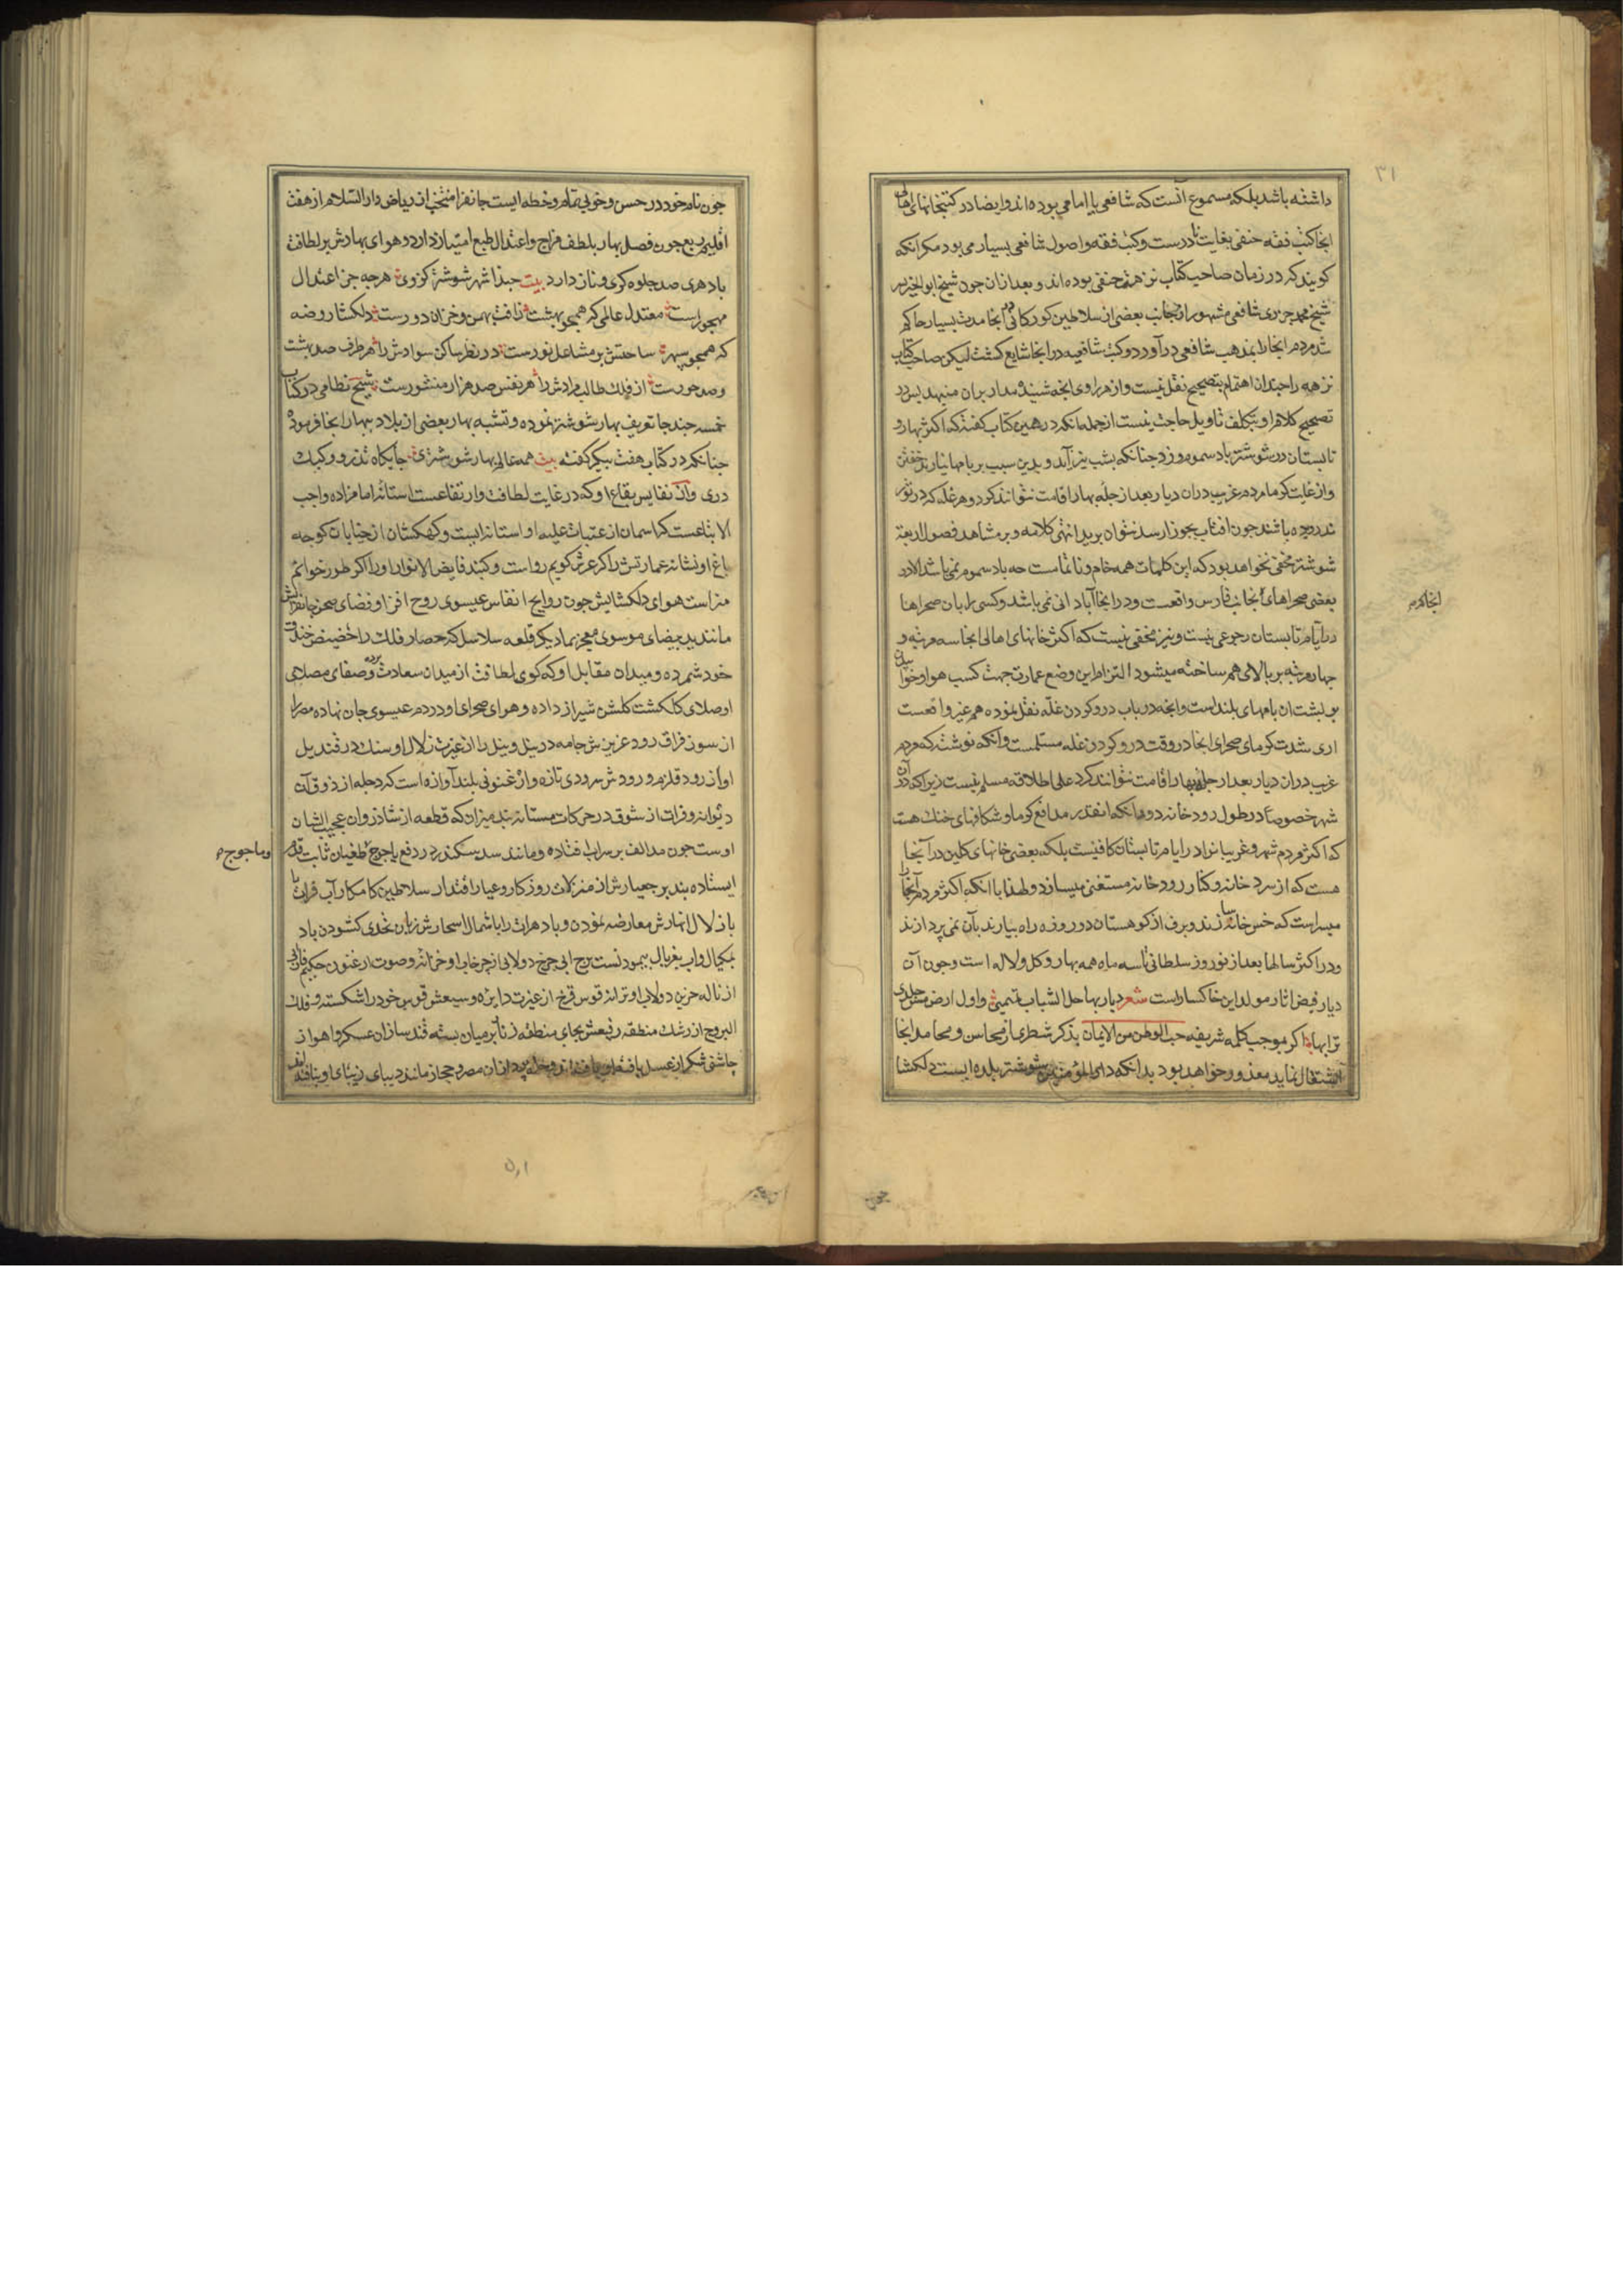 ۳۱
داشته باشد بلکه مسموع آنست که شافعی یا امامی بوده‌اند و ایضا در کتبخانهای اهالی
انجا کتب فقه حنفی بغایت نادرست و کتب فقه و اصول شافعی بسیار می بود مکر انکه
کویند که در زمان صاحب کتاب نزهه حنفی بوده اند و بعد ازان چون شیخ ابو الخیر بن
شیخ محمد جزری شافعی مشهور از جانب بعضی از سلاطین کورکانی در انجا مدت بسیار حاکم
شد مردم انجا را بمذهب شافعی در آورد و کتب شافعیه در انجا شایع کشت لیکن صاحب کتاب
نزهه را چندان اهتمام بتصحیح نقل نیست و از هر راوی انچه شنیده مدار بران منیهد پس در
تصحیح کلام او بتکلف تاویل حاجت نیست از جمله انکه در همین کتاب کفته که اکثر بهار و
تابستان در شوشتر باد سموم وزد چنانکه بشب نیز آید و بدین سبب بر بامها نیارند خفتن
و از غایت کرما مردم غریب دران دیار بعد از جله بهار اقامت نتوانند کرد و هر غله که در ثور
ندرویده باشند چون افتاب بجوزا رسد نتوان برید انتهی کلامه و بر مشاهد فصول اربعة
شوشتر مخفی نخواهد بود که این کلمات همه خام و ناتمامست چه باد سموم نمی باشد الا در
بعضی صحراهای که بجانب فارس واقعست و در انجا آبادانی نمی باشد و کسی را بان صحراها
انجا که م
در ایام تابستان رجوعی نیست و نیز مخفی نیست که اکثر خانهای اهالی انجا سه مرتبه و
چهار مرتبه بر بالای هم ساخته میشود التزام این وضع عمارت جهت کسب هوا و خوابیدن
بر پشت ان بامهای بلند است و انچه در باب درو کردن غله نقل نموده هم غیر واقعست
اری شدت کرمای صحرای انجا در وقت درو کردن غله مسلمست و آنکه نوشته که مردم
غریب دران دیار بعد از جله بهار اقامت نتوانند کرد علی اطلاقه مسلم نیست زیرا که در آن
شهر خصوصا در طول رودخانه دودانکه انقدر مدافع کرما و شکافهای خنک هست
که اکثر مردم شهر و غریبانرا در ایام تابستان کافیست بلکه بعضی خانهای کلین در آنجا
هست که از سردخانه و کنار رودخانه مستغنی میسازد و لهذا با انکه اکثر مردم آنجا را
میسر است که خس خانها سازند و برف از کوهستان دو روزه راه بیارند بآن نمی پردازند
و در اکثر سالها بعد از نوروز سلطانی تا سه ماه همه بهار و کل و لاله است و چون آن
دیار فیض اثار مولد این خاکسار است شعر دیار بها حل الشباب تمیمتی و اول ارض مس جلدی
ترابها اکر بموجب کلمه شریفه حب الوطن من الایمان بذکر شطری از محاسن و محامد انجا
اشتغال نماید معذور خواهد بود بدانکه دار المؤمنین شوشتر بلده ایست دلکشا
چون
چون نام خود در حسن و خوبی تمام و خطه ایست جانفزا منتخب از ریاض دار السلام از هفت
اقلیم ربع چون فصل بهار بلطف مزاج و اعتدال طبع امتیاز دارد و هوای بهارش بر لطافت
باد هری صد جلوه کری و ناز دارد بیت حبذا شهر شوشتر کز وی هر چه جز اعتدال
مهجور است معتدل عالمی که همچو بهشت ز افت بهمن و خزان دورست دلکشا روضه
که همچو سپهر ساحتش بر مشاعل نورست در نظر ساکن سوادش را هر طرف صد بهشت
و صد حورست از فلک طالب مرادش را هر نفس صد هزار منشورست شیخ نظامی در کتاب
خمسه چند جا تعریف بهار شوشتر نموده و تشبیه بهار بعضی از بلاد ببهار انجا فرموده
چنانکه در کتاب هفت پیکر کفته بیت همه عالم بهار شوشتری جایکاه تذرو و کبک
دری و از نفایس بقاع او که در غایت لطافت و ارتفاعست استانه امامزاده واجب
الاتباعست که اسمان از عتبات علیه او استانه ایست و کهکشان از خیابان کوچه
باغ او نشانه عمارتش را کر عرش کویم رواست و کنبد فایض الانوار او را اکر طور خوانم
سزاست هوای دلکشایش چون روایح انفاس عیسوی روح افزا و فضای صحن جانفزایش
مانند ید بیضای موسوی معجز نما دیکر قلعه سلاسل که حصار فلک را حضیض خندق
خود شمرده و میدان مقابل او که کوی لطافت از میدان سعادت برده و صفای مصلای
او صلای کلکشت کلشن شیراز داده و هوای صحرای او در دم عیسوی جان نهاده مصر را
از سوز فراق رود عزیزش جامه در نیل و نیل را از غیرت زلال او سنک در قندیل
اواز رود قلزم و رودش سرودی تازه و ارغنونی بلند آوازه است که دجله از ذوق آن
دیوانه و فرات از شوق در حرکات مستانه بند میزان که قطعه از شاذروان عجیب الشان
اوست چون مد الف بر سر آب افتاده و مانند سد سکندر در دفع یاجوج طغیان ثابت قدم
و ماجوج م
ایستاده بند بر جعیارش از منزلات روزکار و عیار اقتدار سلاطین کامکار آب فرات با
با زلال انهارش معارضه نمودن و باد هرات را با شمال اسحارش زبان تحدی کشودن باد
بمکیال و اب بغربال پیمودنست برج ابی چرخ دولابی از چرخاب او خزانه و صوت ارغنون حکیم فارابی
از ناله حزین دولاب او ترانه قوس قزح از غیرت دایره وسیعش قوس خود را شکسته و فلک
البروج از رشک منطقه رفیعش بجای منطقه زنار بر میان بسته قند سازان عسکر و اهواز
چاشنی شکر از عسل یافته مانند دیبای زیبای
۵٫۱